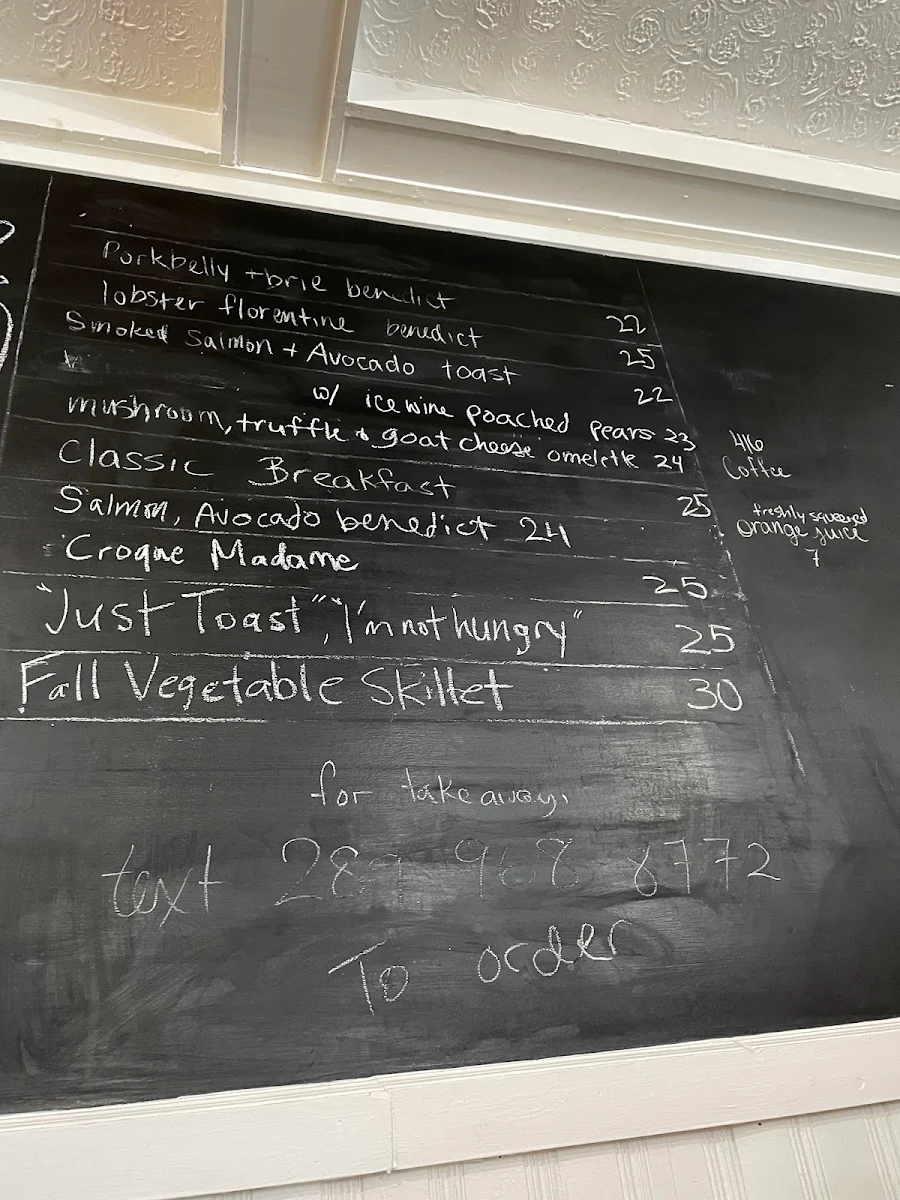 Porkbelly + brie benedict 22
lobster florentine benedict 25
Smoked Salmon + Avocado toast 22
w/ icewine poached pears 23
mushroom, truffle & goat cheese omelette 24
Classic Breakfast 25
Salmon, Avocado benedict 24
Croque Madame 25
"Just Toast", "I'm not hungry" 25
Fall Vegetable Skillet 30
4/6
Coffee
freshly squeezed
orange juice
7
for takeaway,
text 289 968 8772
To order